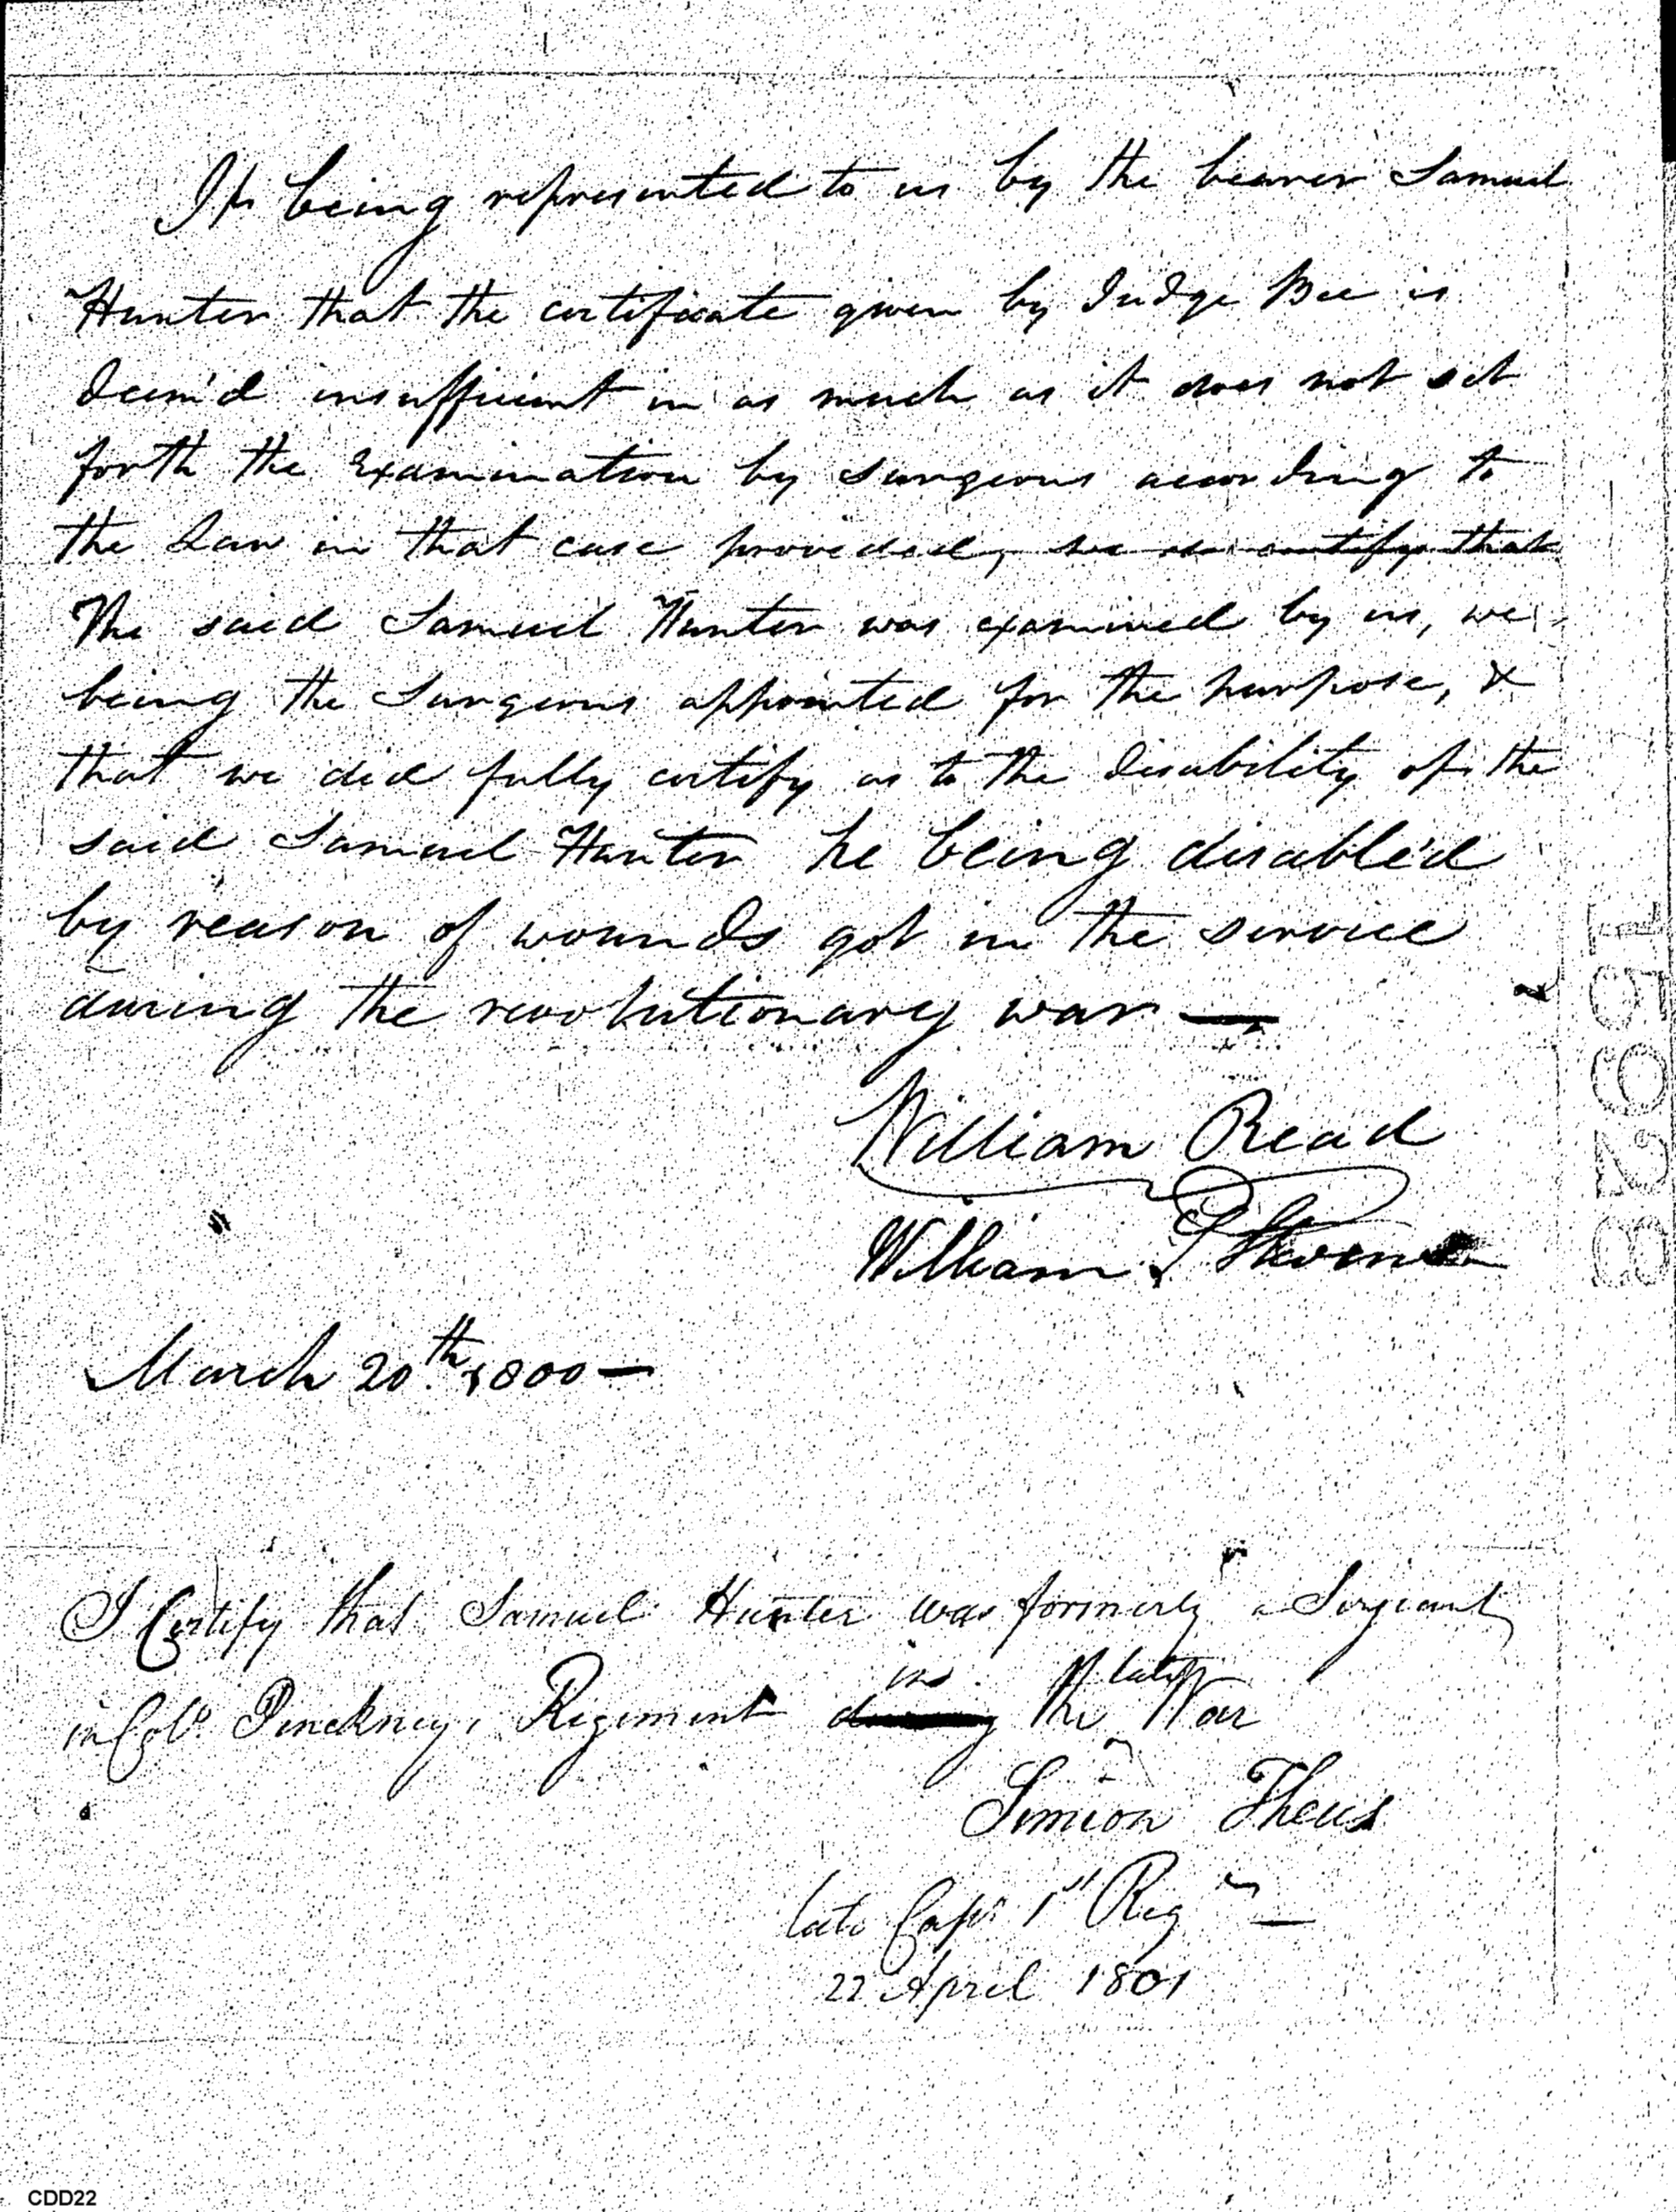 It being represented to us by the bearer Samuel
Hunter that the certificate given by Judge Bee is
deem'd insufficient in as much as it does not set
forth the Examination by Surgeons according to
the Law in that case provided, we do certify that
The said Samuel Hunter was examined by us, we
being the Surgeons appointed for the purpose, &
that we did fully certify as to the disability of the
said Samuel Hunter he being disable'd
by reason of wounds got in the service
during the revolutionary war —
William Read
William S Stevens
March 20th. 1800 —
I Certify that Samuel Hunter was formerly a Serjeant
in late
in Colo. Pinckneys Regiment during the War
Simeon Theus
late Capt. 1st Reg
22 April 1801
CDD22